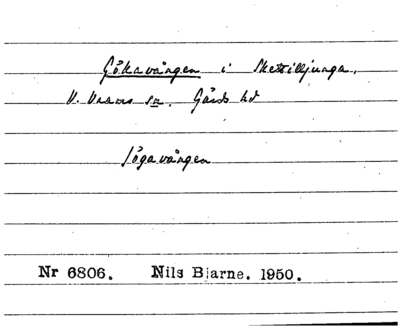 Gökavången i Skettilljunga.
V. Vrams sn. Gärds hd
jögavången
Nr 6806. Nils Bjarne. 1950.